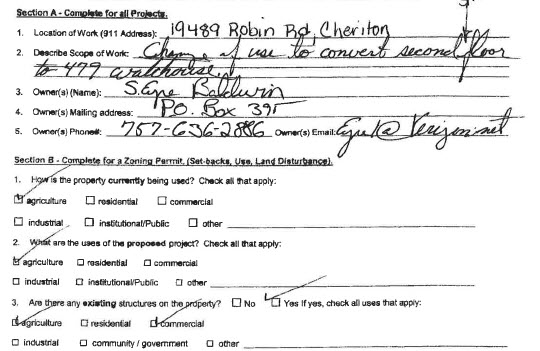 Section A - Complete for all Projects.
1. Location of Work (911 Address): 19489 Robin Rd, Cheriton
2. Describe Scope of Work: Change of use to convert second floor
to 479 watchouse.
3. Owner(s) (Name): S. Eyre Baldwin
4. Owner(s) Mailing address: P.O. Box 395
5. Owner(s) Phone#: 757-636-2886 Owner(s) Email: Verizon.net
Section B - Complete for a Zoning Permit. (Set-backs, Use, Land Disturbance).
1. How is the property currently being used? Check all that apply:
☑ agriculture ☐ residential ☐ commercial
☐ industrial ☐ institutional/Public ☐ other
2. What are the uses of the proposed project? Check all that apply:
☑ agriculture ☐ residential ☐ commercial
☐ industrial ☐ institutional/Public ☐ other
3. Are there any existing structures on the property? ☐ No ☑ Yes If yes, check all uses that apply:
☑ agriculture ☐ residential ☑ commercial
☐ industrial ☐ community / government ☐ other